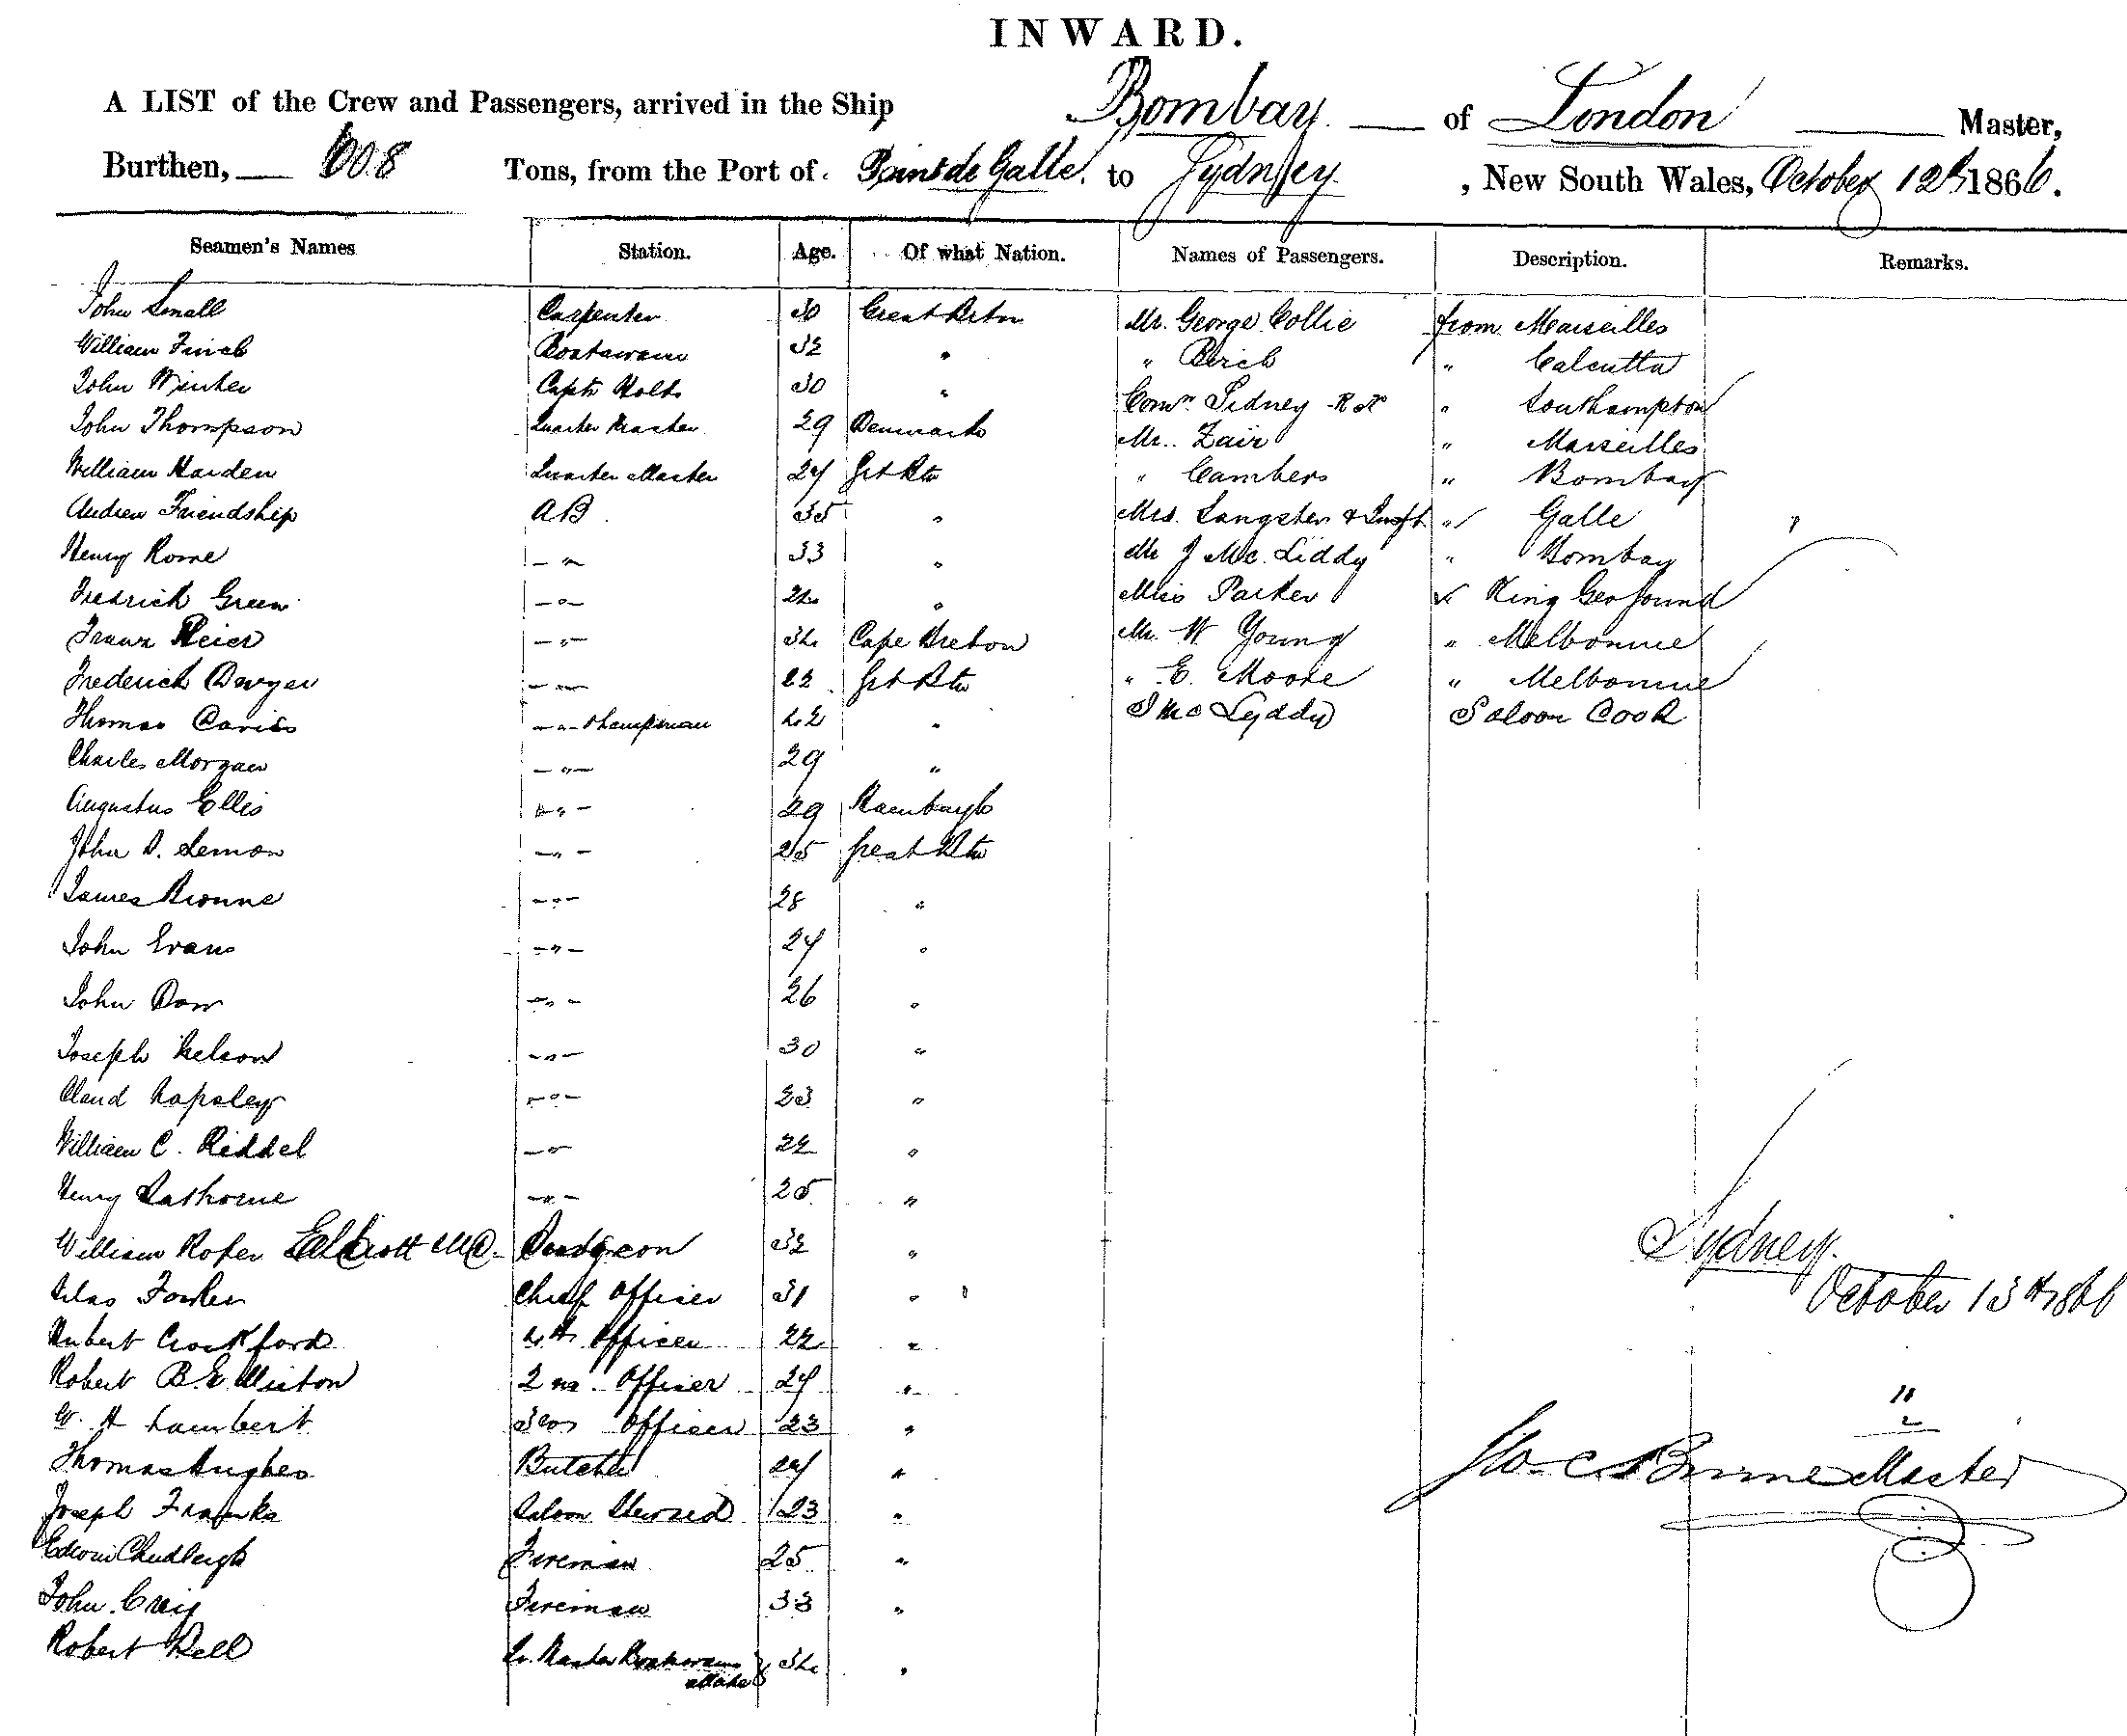 INWARD.
A LIST of the Crew and Passengers, arrived in the Ship Bombay — of London Master,
Burthen, 608 Tons, from the Port of Point de Galle. to Sydney, New South Wales, October 12th 1866.
Seamen's Names Station. Age. Of what Nation. Names of Passengers. Description. Remarks.
John Small Carpenter 30 Great Britn Mr. George Collie from Marseilles
William Finch Boatswain 32 " " Birch " Calcutta
John Winter Capts 30 " Comr. Sidney R N " Southampton
John Thompson Quarter Master 29 Denmark Mr. Zair " Marseilles
William Harden Quarter Master 24 Grt Btn " Cambers " Bombay
Andrew Friendship AB 35 " Mrs. Sangster & Inft " Galle
Henry Rome - " 33 " Mr J Mc. Liddy " Bombay
Fredrick Green - " - " Miss Parker " King Geo Sound
Franz Meier - " - Cape Breton Mr. W Young " Melbourne
Frederick Dwyer - " - 22 Grt Btn " E. Moore " Melbourne
Thomas Davis - " - Lampsman 22 " J Mc Lyddy Saloon Cook
Charles Morgan - " - 29 "
Augustus Ellis - " - 29 Hamburgh
John D. Lemon - " - 25 Great Btn
James Browne - " - 28 "
John Evans - " - 24 "
John Dow - " - 26 "
Joseph Nelson - " - 30 "
Claud Rapsley - " - 23 "
William C. Riddel - " 22 "
Henry Rathorne - " - 25 "
William Roper Elliott MD. Surgeon 32 " Sydney.
Silas Fowler Chief Officer 31 " October 13th 1866
Hubert Crockford 4th Officer 22 "
Robert B. Elliston 2nd Officer 24 "
W. H Lambert 3rd Officer 23 "
Thomas Hughes Butcher 24 " Master
Joseph Franks Saloon Steward 23 "
Edwin Chudleigh Fireman 25 "
John Craig Fireman 33 "
Robert Bell Qr. Master Boatswains Mate "